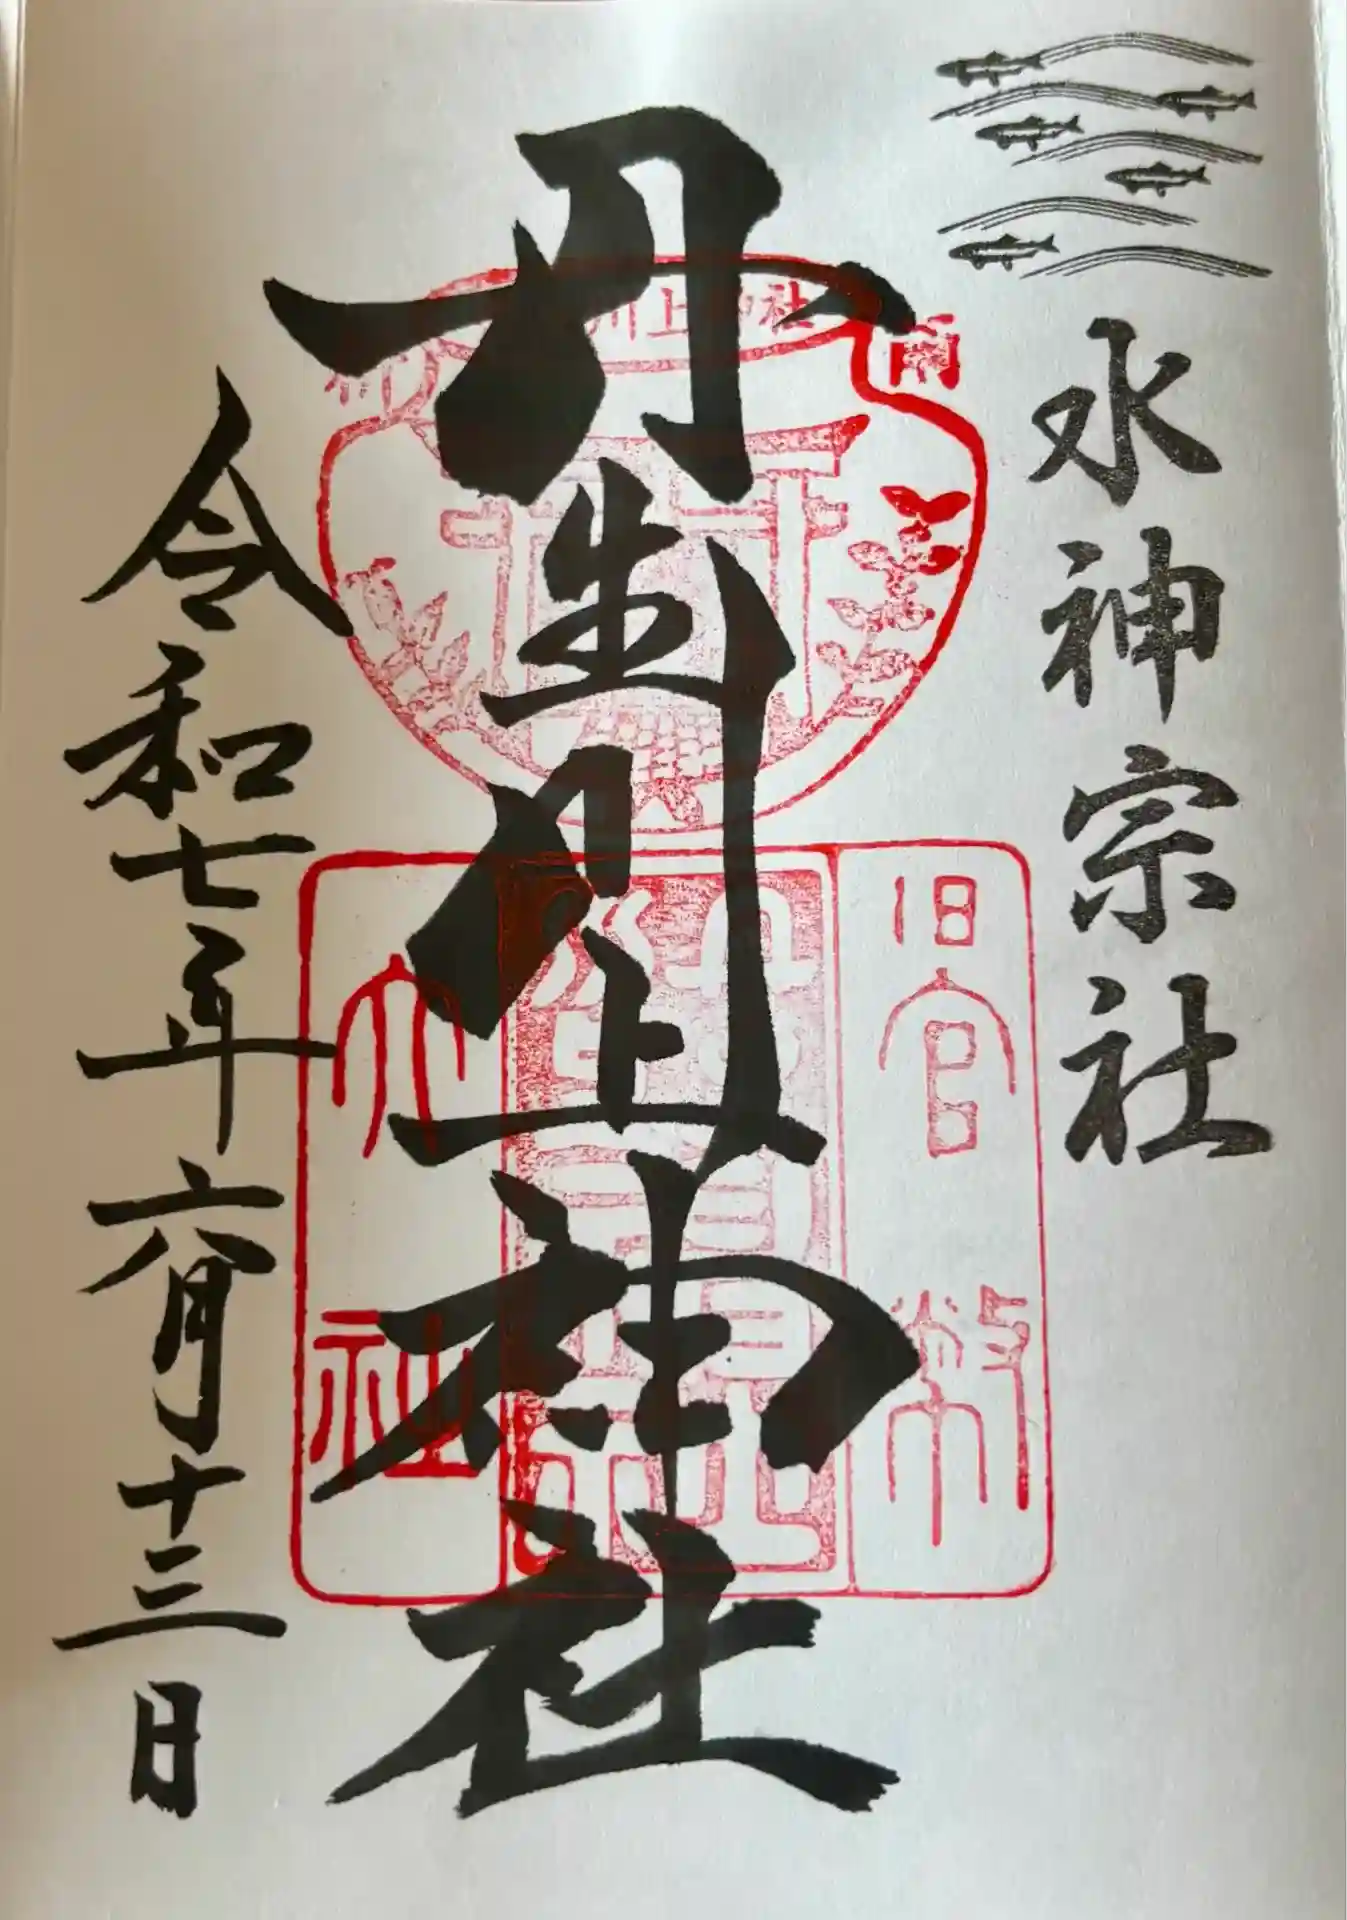 水神宗社
丹生川上神社
令和七年六月十三日
川上神社
雨
旧官幣
大社